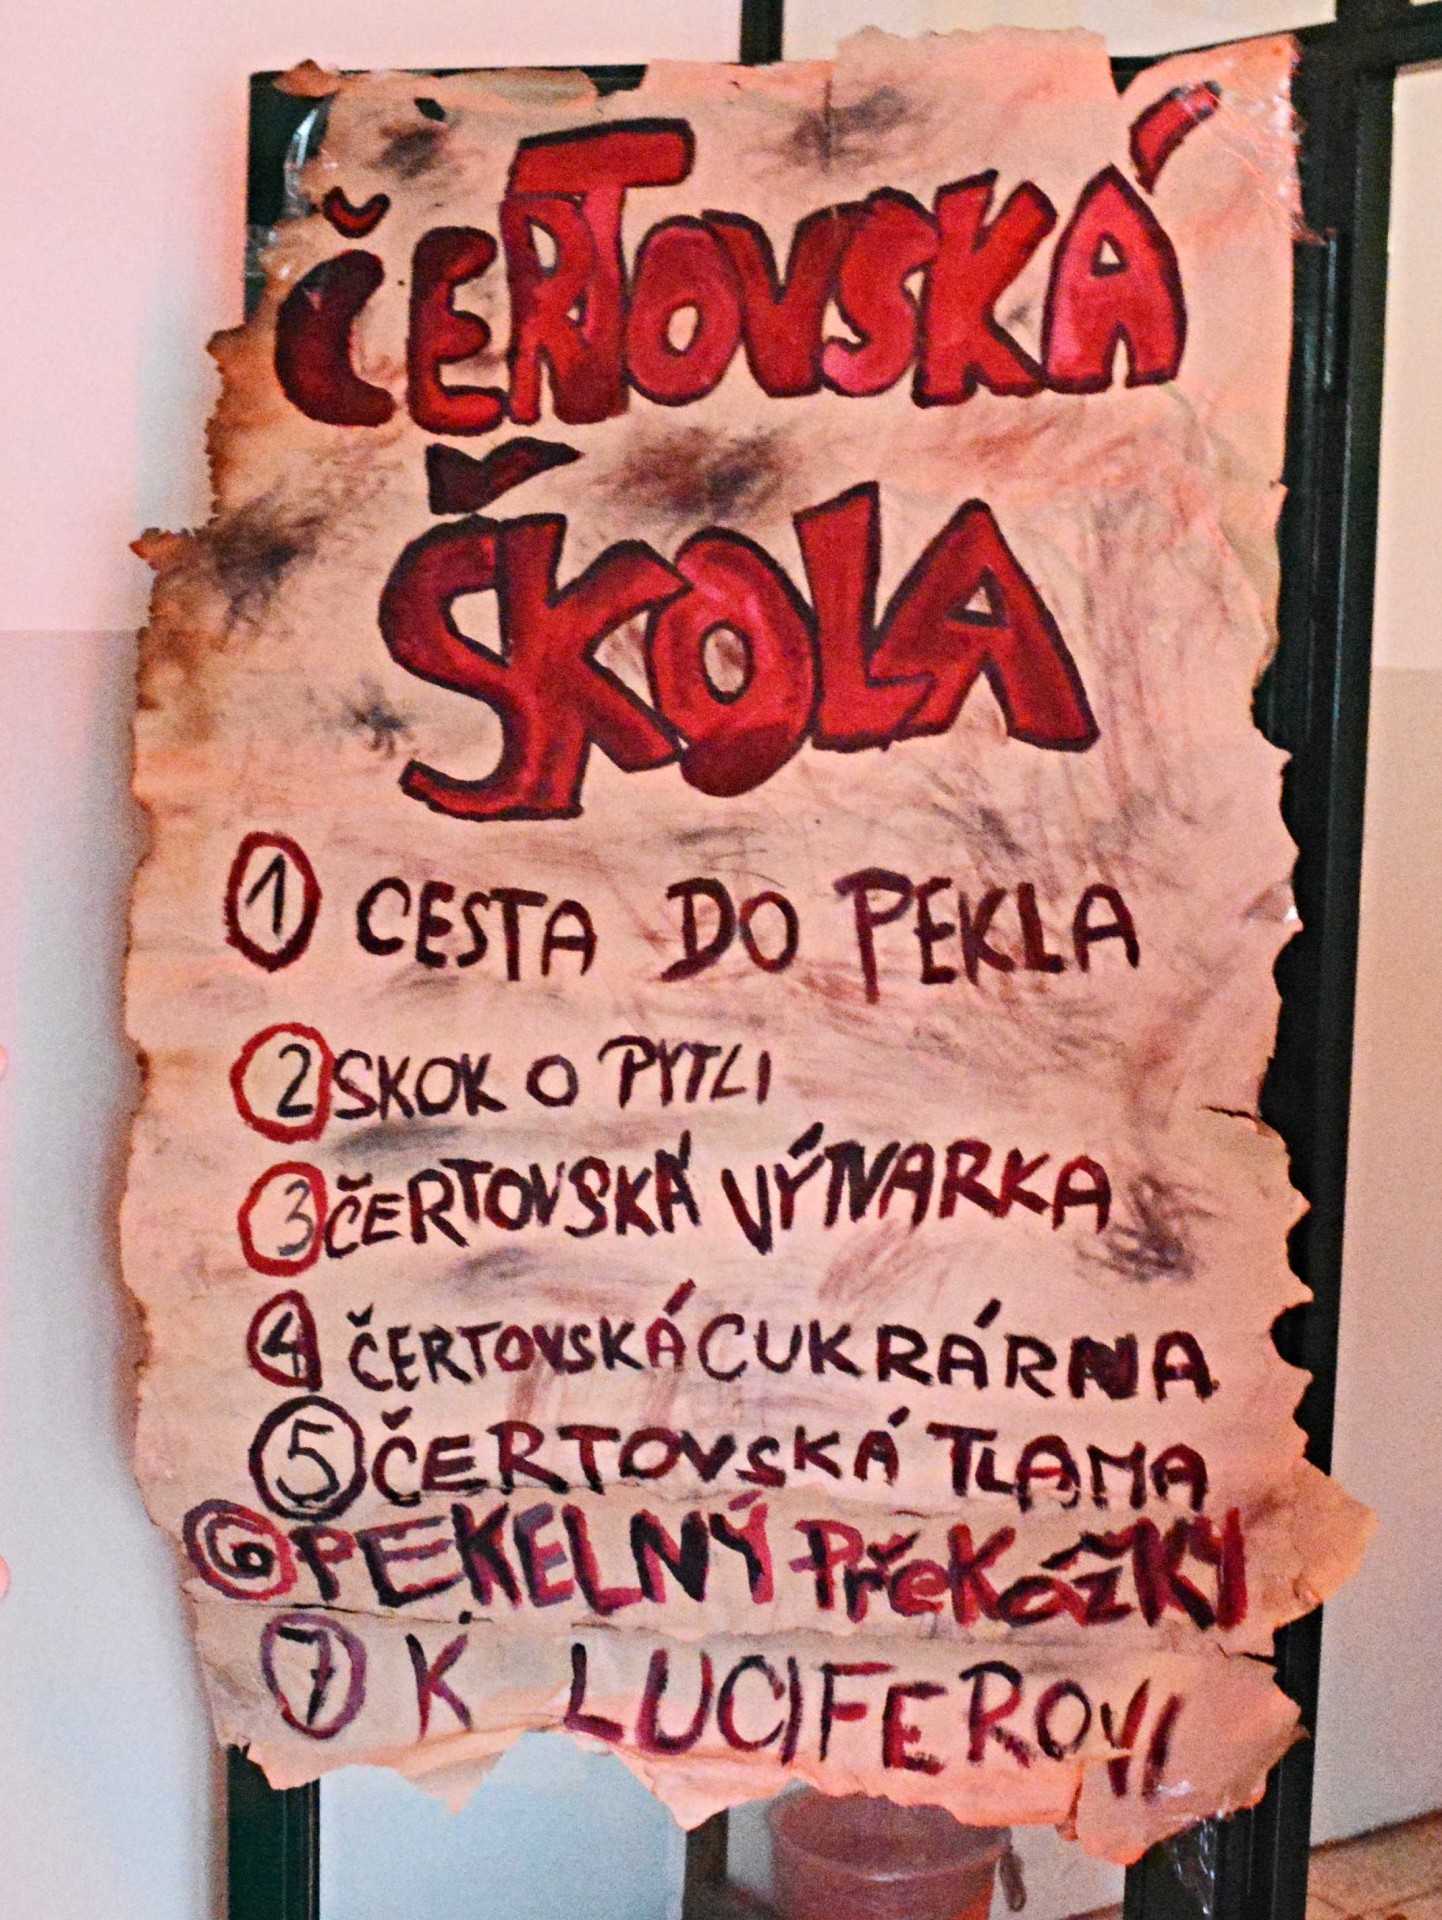 ČERTOVSKÁ
ŠKOLA
1 CESTA DO PEKLA
2 SKOK O PYTLI
3 ČERTOVSKÁ VÝTVARKA
4 ČERTOVSKÁ CUKRÁRNA
5 ČERTOVSKÁ TLAMA
6 PEKELNÝ PřeKážKY
7 K LUCIFEROVI